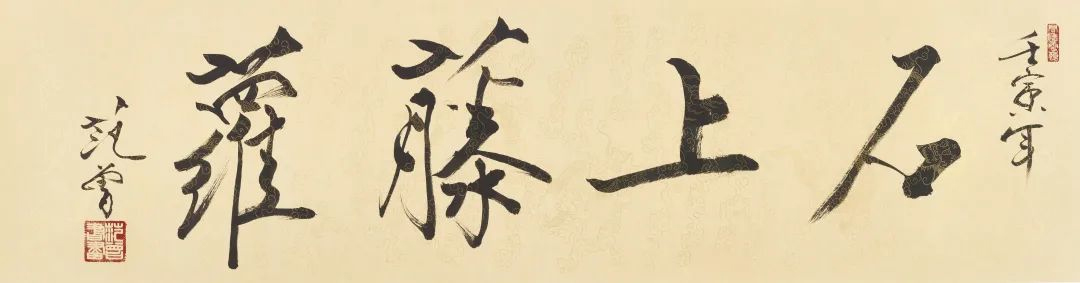 壬寅年
石上藤蘿
范曾